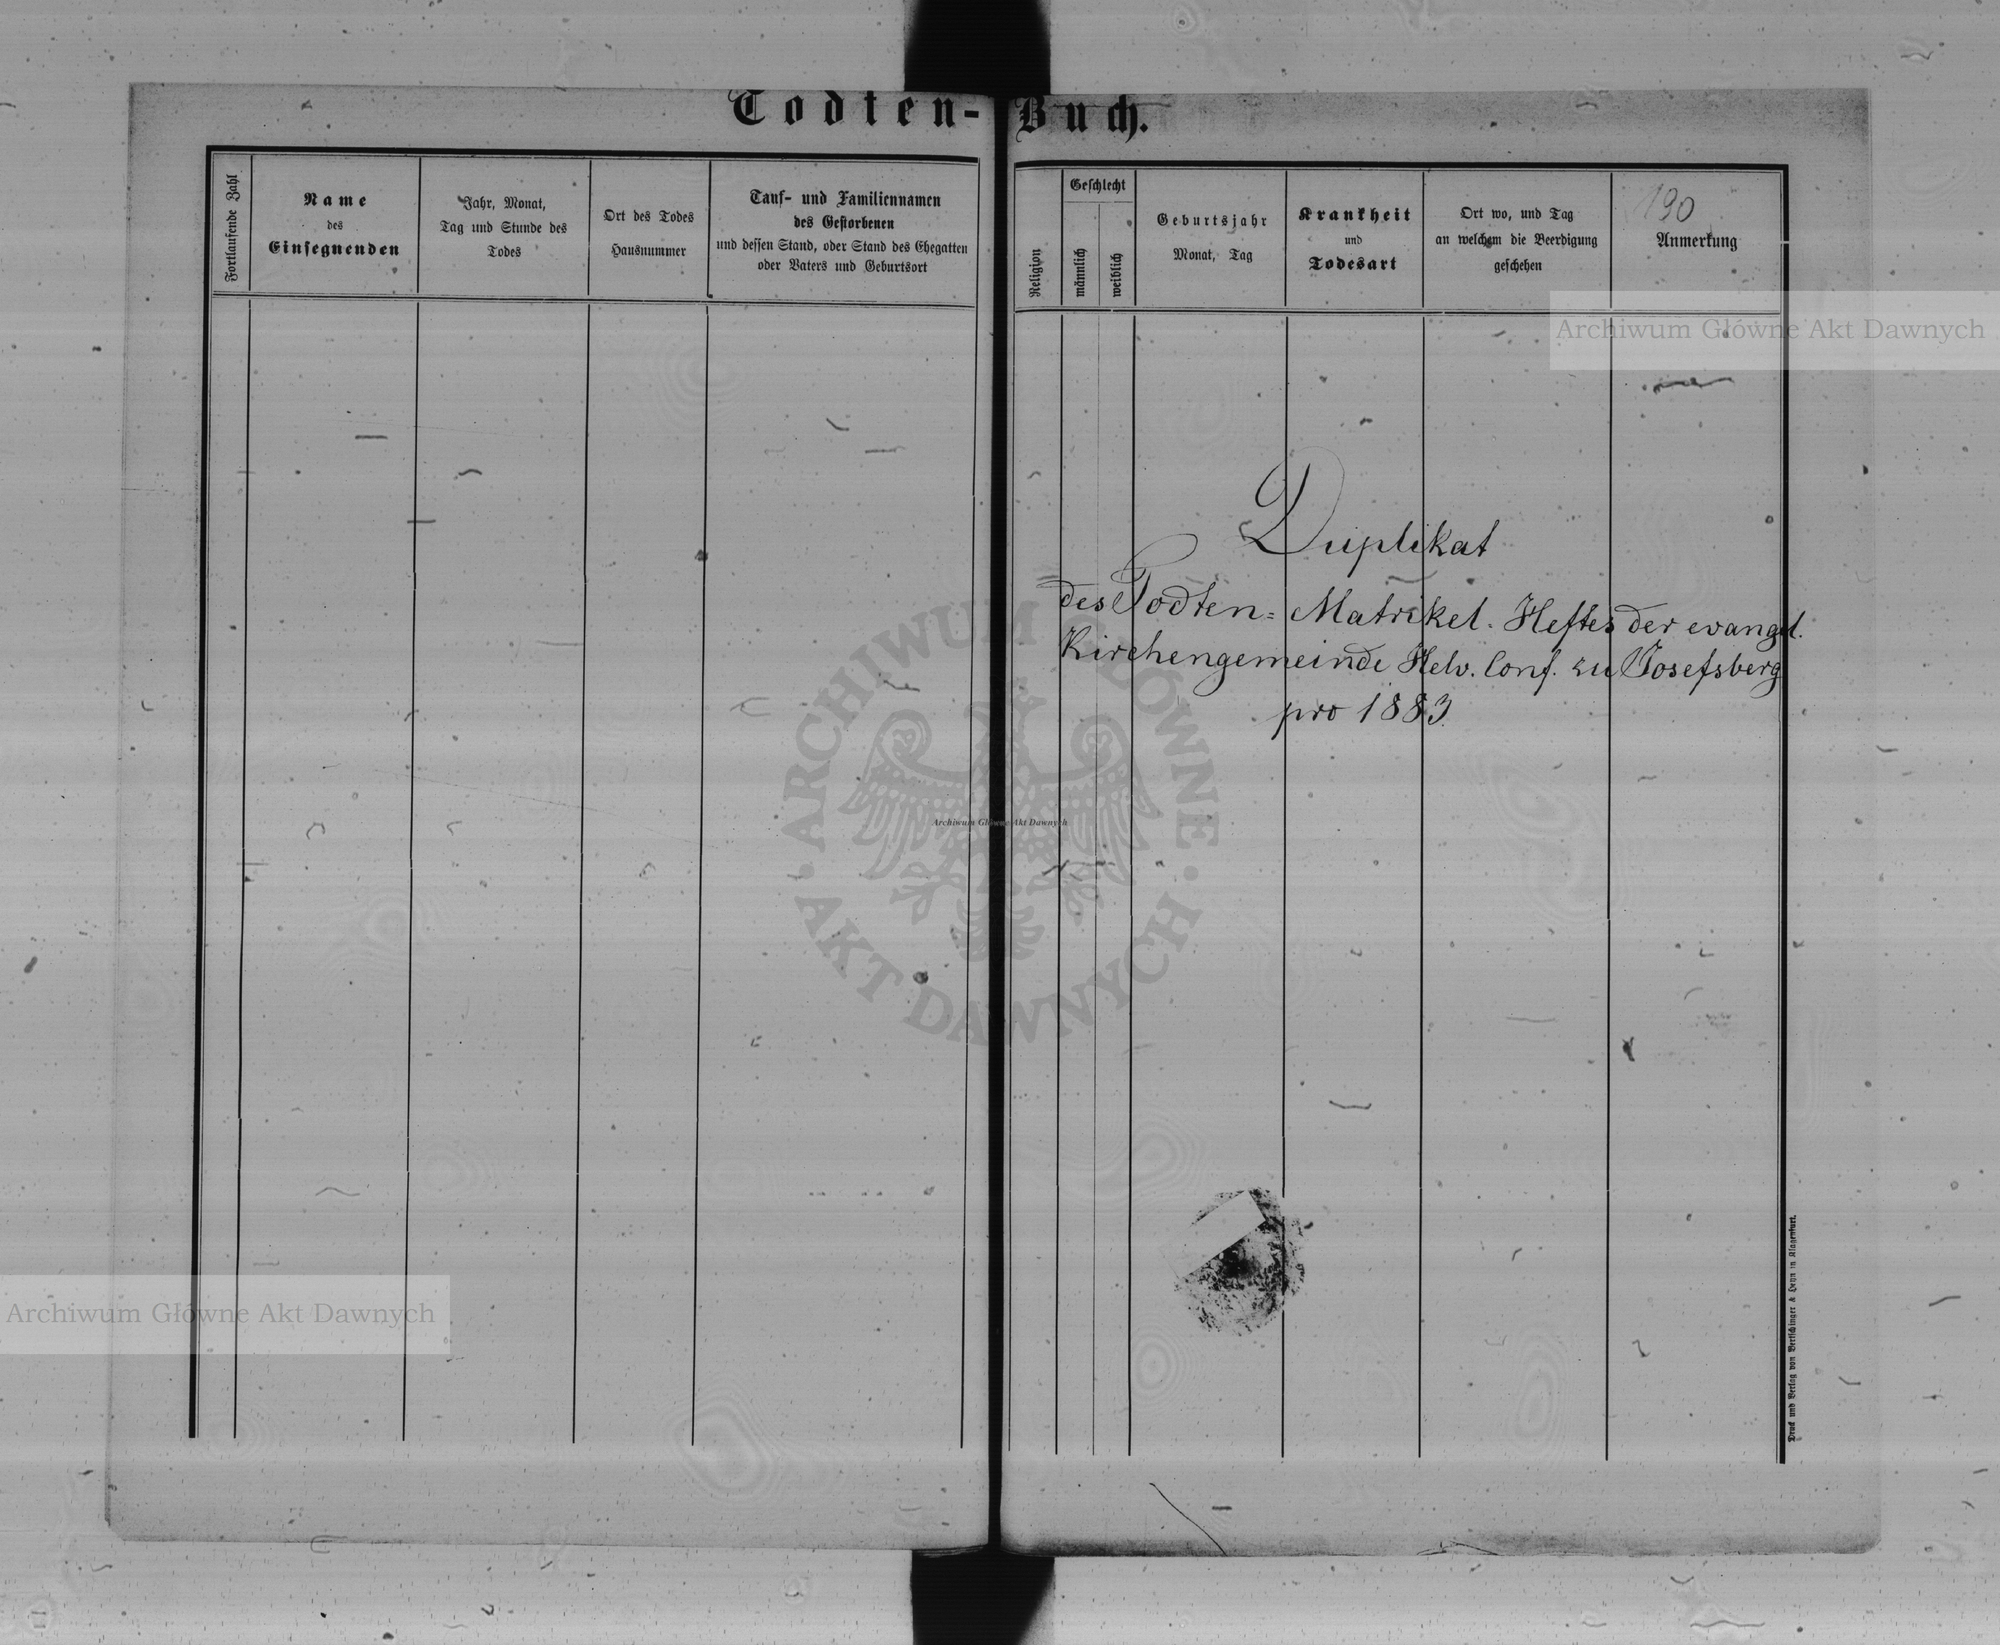 Todten-Buch.
Fortlaufende Zahl
Name
des
Einsegnenden
Jahr, Monat,
Tag und Stunde des
Todes
Ort des Todes
Hausnummer
Tauf- und Familiennamen
des Gestorbenen
und dessen Stand, oder Stand des Ehegatten
oder Vaters und Geburtsort
Religion
Geschlecht
männlich
weiblich
Geburtsjahr
Monat, Tag
Krankheit
und
Todesart
Ort wo, und Tag
an welchem die Beerdigung
geschehen
190
Anmerkung
Archiwum Główne Akt Dawnych
Duplikat
des Todten-Matrikel-Heftes der evangel.
Kirchengemeinde Helv. Conf. zu Josefsberg
pro 1883
ARCHIWUM GŁÓWNE
AKT DAWNYCH
Archiwum Główne Akt Dawnych
Archiwum Główne Akt Dawnych
Druck und Verlag von Bertschinger & Heyn in Klagenfurt.